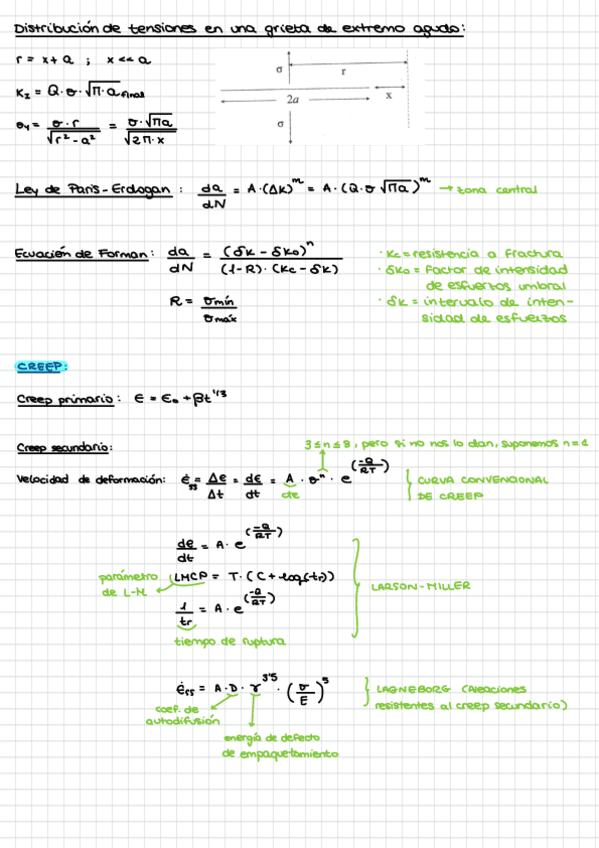 Distribución de tensiones en una grieta de extremo agudo:
r = x + a ; x << a
K_I = Q · σ · √(π · a_final)
σ_y = σ · r / √(r² - a²) = σ · √(πa) / √(2π · x)
σ
r
2a
x
σ
Ley de Paris-Erdogan: da/dN = A · (ΔK)^m = A · (Q · σ √(πa))^m → zona central
Ecuación de Forman: da/dN = (δK - δK₀)^n / ((1-R) · (Kc - δK))
R = σmín / σmáx
· Kc = resistencia a fractura
· δK₀ = Factor de intensidad
de esfuerzos umbral
· δK = intervalo de inten-
sidad de esfuerzos
CREEP:
Creep primario: ε = ε₀ + βt^1/3
Creep secundario:
3 ≤ n ≤ 8, pero si no nos lo dan, suponemos n = 4
Velocidad de deformación: ε̇_ss = Δε/Δt = dε/dt = A · σ^n · e^(-Q/RT)
cte
CURVA CONVENCIONAL
DE CREEP
dε/dt = A · e^(-Q/RT)
parámetro
de L-M
LMCP = T · (C + log(tr))
1/tr = A · e^(-Q/RT)
tiempo de ruptura
LARSON-MILLER
ε̇_ss = A · D · γ^3'5 · (σ/E)^5
LAGNEBORG (Aleaciones
resistentes al creep secundario)
coef. de
autodifusión
energía de defecto
de empaquetamiento